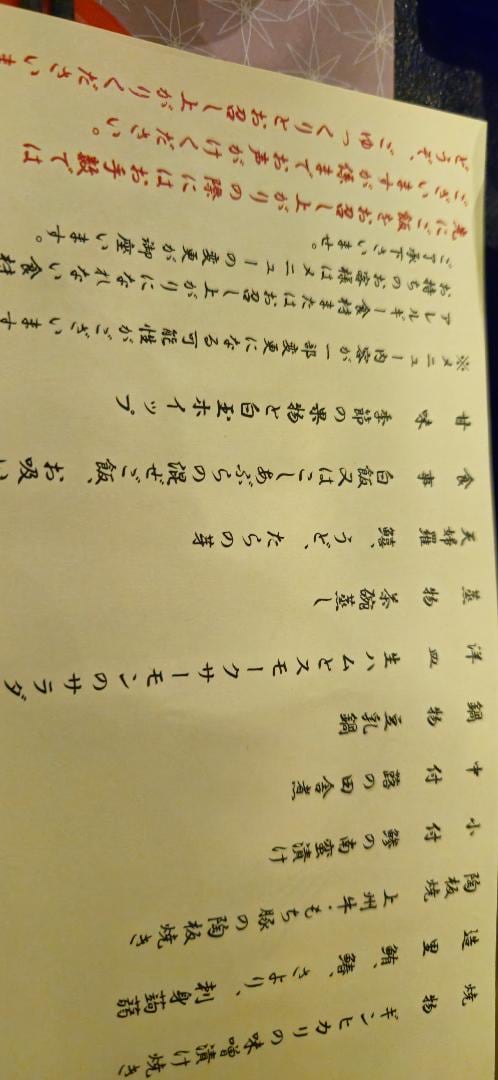 焼物 ギンヒカリの味噌漬け焼き
造里 鮪、鰆、さより、刺身蒟蒻
陶板焼 上州牛・もち豚の陶板焼き
小付 鯵の南蛮漬け
中付 蕗の田舎煮
鍋物 豆乳鍋
洋皿 生ハムとスモークサーモンのサラダ
蒸物 茶碗蒸し
天婦羅 鱚、うど、たらの芽
食事 白飯又はこしあぶらの混ぜご飯、お吸い
甘味 季節の果物と白玉ホイップ
※メニュー内容が一部変更になる可能性がございます
アレルギー食材またはお召し上がりになれない食材
お持ちのお客様はメニューの変更が御座います。
ご了承下さいませ。
先にご飯をお召し上がりの際にはお手数では
ございますが係までお声がけください。
どうぞ、ごゆっくりとお召し上がりくださいま